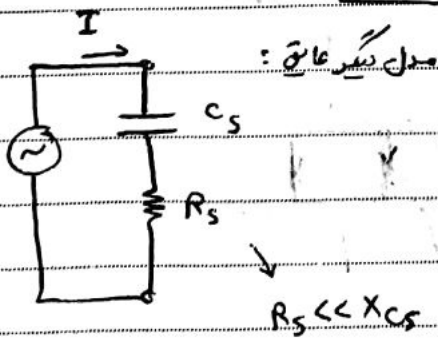 I
مدل دیگر عایق :
Cs
~
Rs
Rs << Xcs